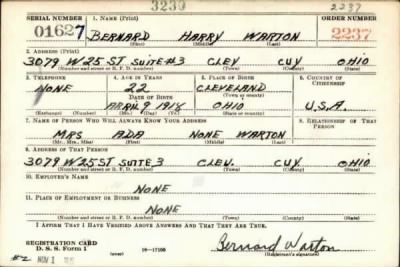 3230 2237
SERIAL NUMBER 1. NAME (Print) ORDER NUMBER
01627 BERNARD HARRY WARTON 2237
(First) (Middle) (Last)
2. ADDRESS (Print)
3079 W 25 ST SUITE #3 CLEV CUY OHIO
(Number and street or R. F. D. number) (Town) (County) (State)
3. TELEPHONE 4. AGE IN YEARS 5. PLACE OF BIRTH 6. COUNTRY OF CITIZENSHIP
NONE 22 CLEVELAND
DATE OF BIRTH (Town or county)
APRIL 9 1918 OHIO U.S.A.
(Exchange) (Number) (Mo.) (Day) (Yr.) (State or country)
7. NAME OF PERSON WHO WILL ALWAYS KNOW YOUR ADDRESS 8. RELATIONSHIP OF THAT PERSON
MRS ADA NONE WARTON
(Mr., Mrs., Miss) (First) (Middle) (Last)
9. ADDRESS OF THAT PERSON
3079 W 25 ST SUITE 3 CLEV. CUY OHIO
(Number and street or R. F. D. number) (Town) (County) (State)
10. EMPLOYER'S NAME
NONE
11. PLACE OF EMPLOYMENT OR BUSINESS
NONE
(Number and street or R. F. D. number) (Town) (County) (State)
I AFFIRM THAT I HAVE VERIFIED ABOVE ANSWERS AND THAT THEY ARE TRUE.
REGISTRATION CARD
D. S. S. Form 1 16-17105 Bernard Warton
(Registrant's signature)
#2 NOV 1